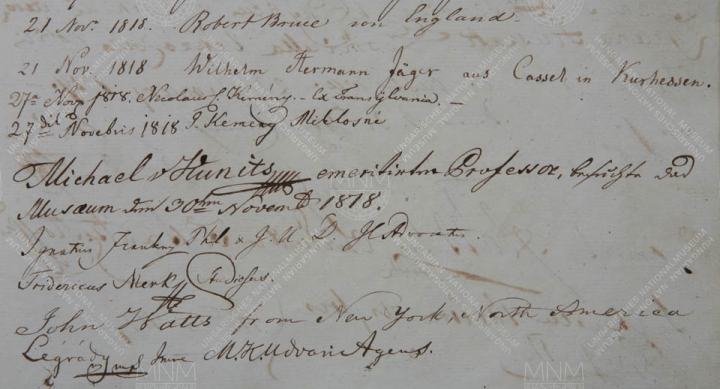 21 Nov. 1818. Robert Bruce von England.
21 Nov. 1818 Wilhelm Hermann Jäger aus Cassel in Kurhessen.
27a Nov. 1818. Nicolaus C. Kemény. - Ex Transylvania. -
27dik Novebris 1818 G. Kemény Miklosné
Michael v Hunits emeritirter Professor, besuchte das
Musæum den 30ten Novemb 1818.
Ignatius Frankny Phl. J. U. D. H Advocatus.
Fridericus Merk Studiosus.
John Hatts from New York North America
Légrády Imre M. H. Udvari Agens.